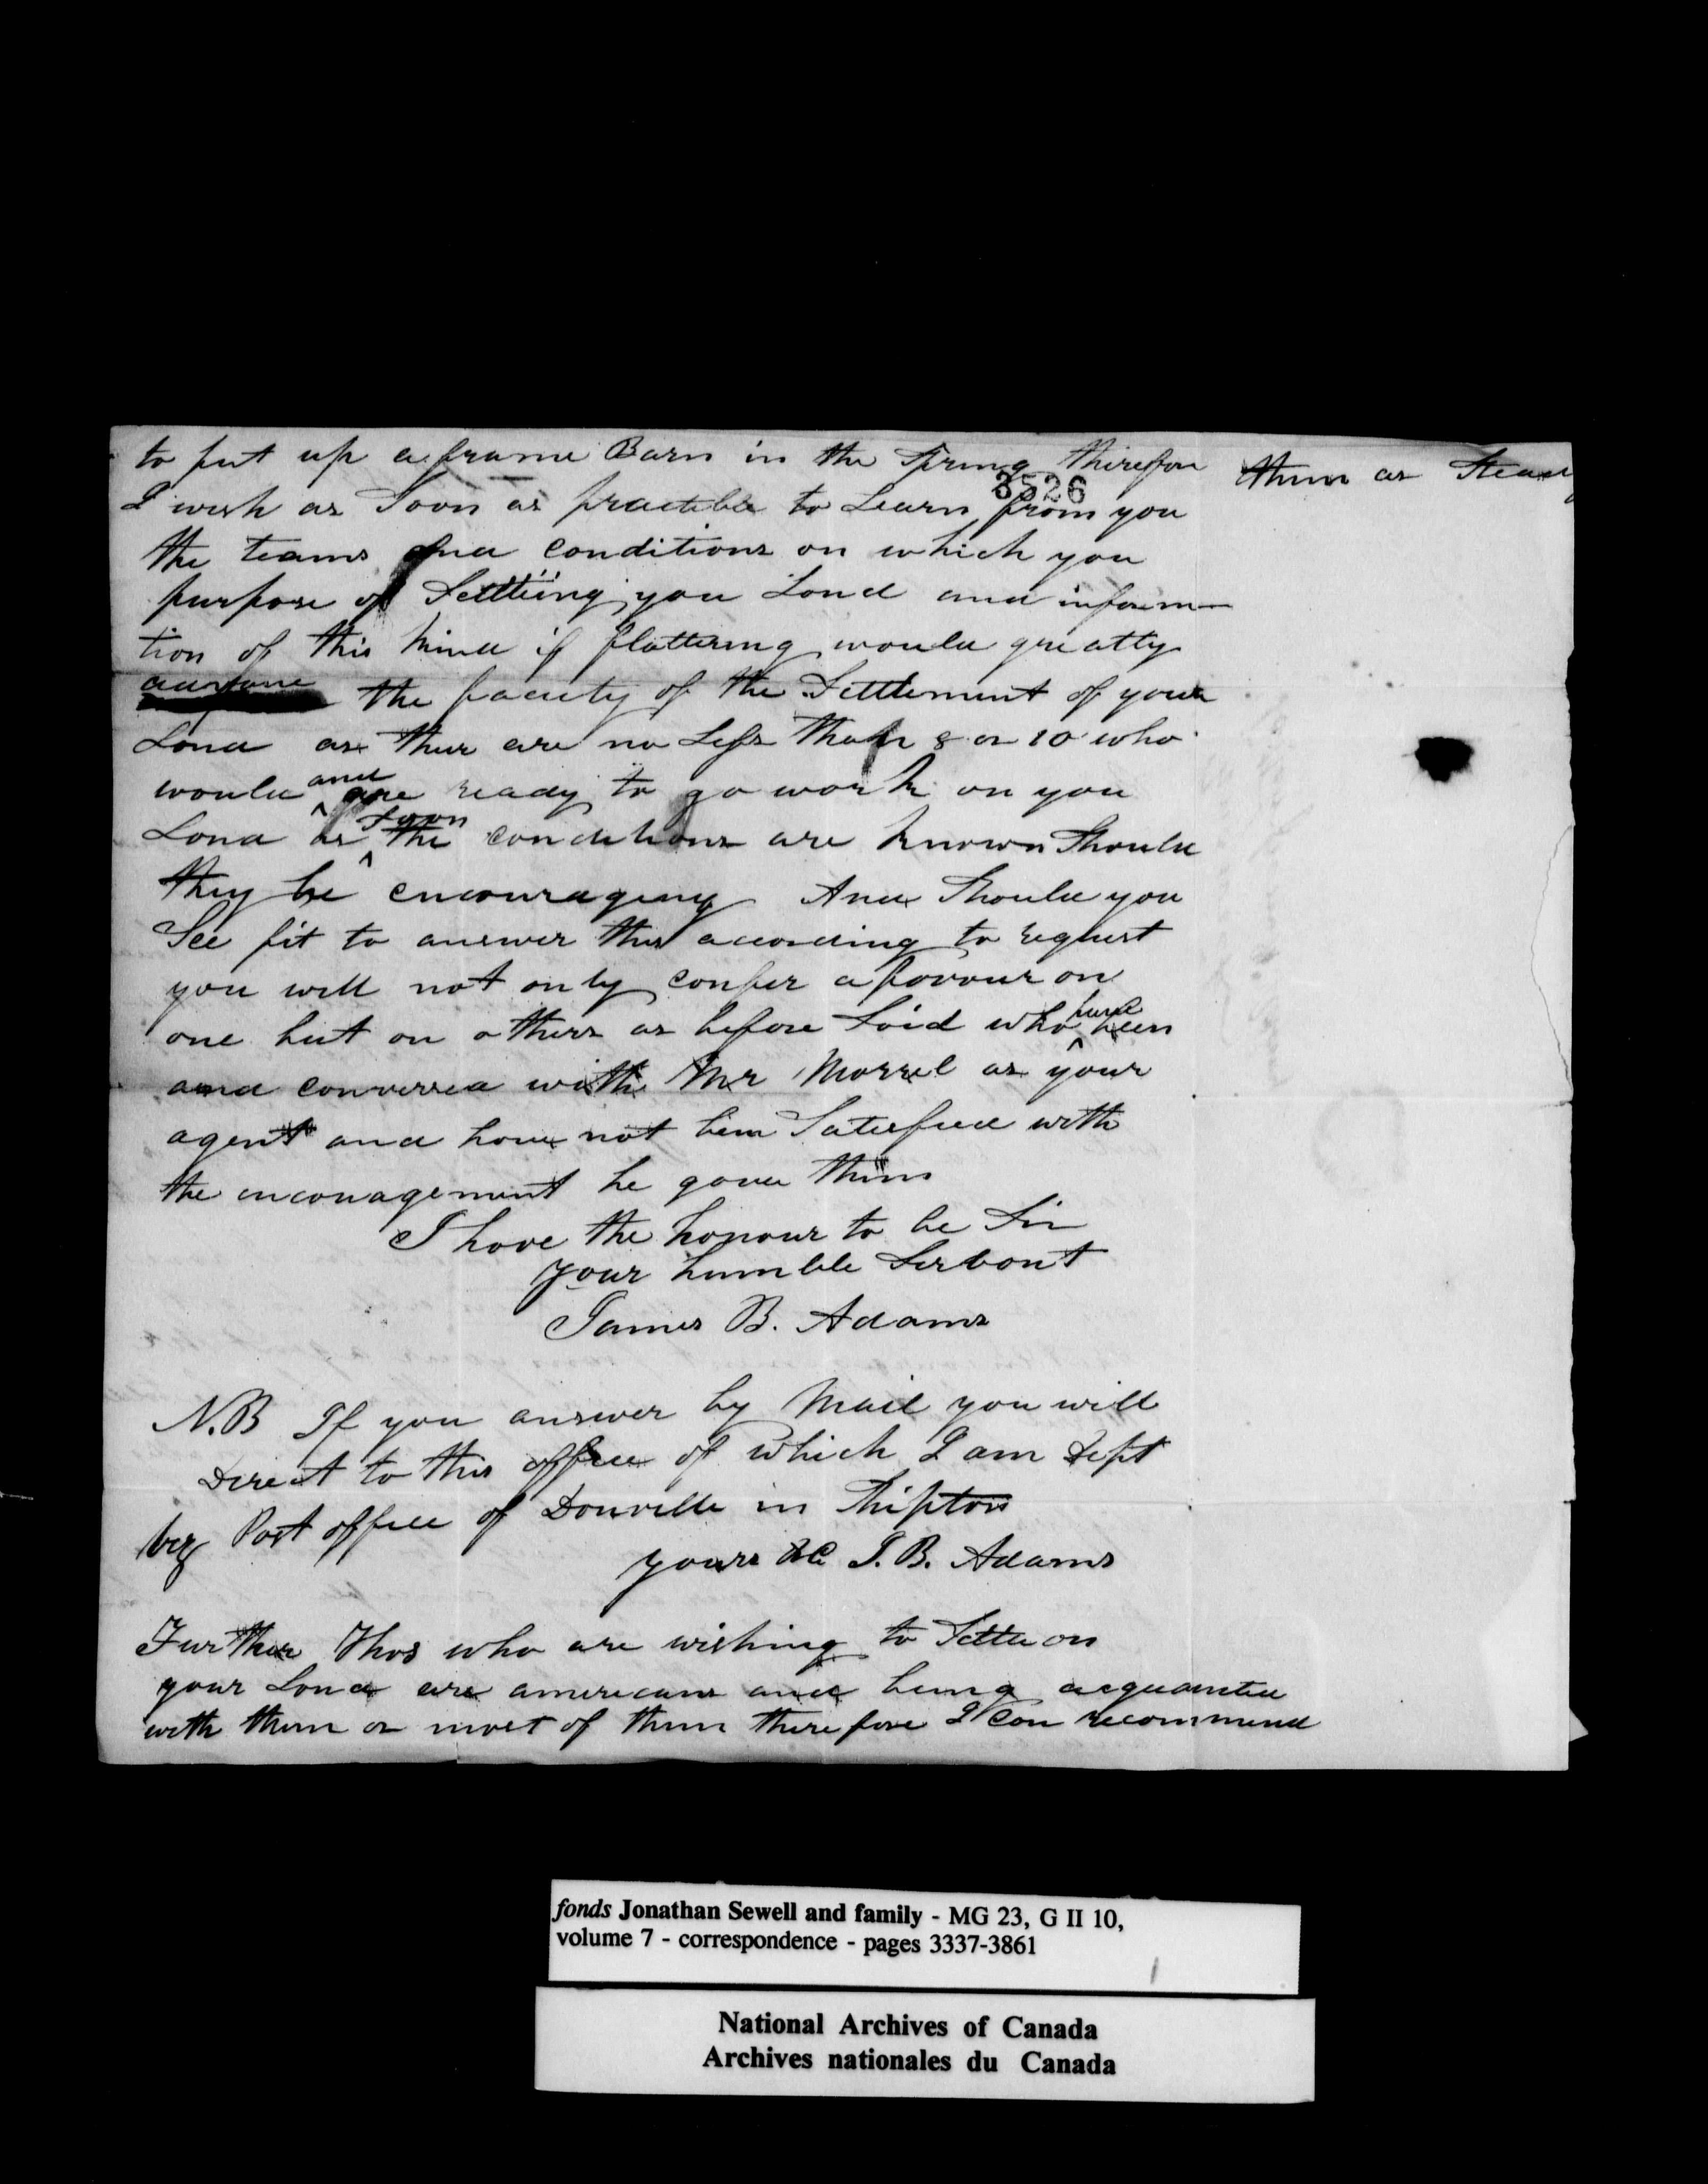 to put up a frame Barn in the Spring therefore
3526
I wish as Soon as practible to Learn from you
the teams and conditions on which you
purpose of Settling you Land and informa-
tion of this kind if flattering would greatly
advance the facity of the Settlement of your
Land as ther are no Less than 8 or 10 who
would and are ready to go work on you
Land as Soon the conditions are known Should
they be encouraging And Should you
See fit to answer this according to request
you will not only confer a favour on
one but on others as before Said who have been
and conversed with Mr Morrel as your
agent and have not bein Satisfied with
the encouragement he gave them
I have the honour to be Sir
your humble Servant
James B. Adams
N.B If you answer by Mail you will
Direct to this office of which I am Dept
viz Post office of Danville in Shipton
yours &c J. B. Adams
Further Thos who are wishing to Settle on
your Land are americans and being acquainted
with them or most of them therefore I can recommend
them as Steady
fonds Jonathan Sewell and family - MG 23, G II 10,
volume 7 - correspondence - pages 3337-3861
National Archives of Canada
Archives nationales du Canada